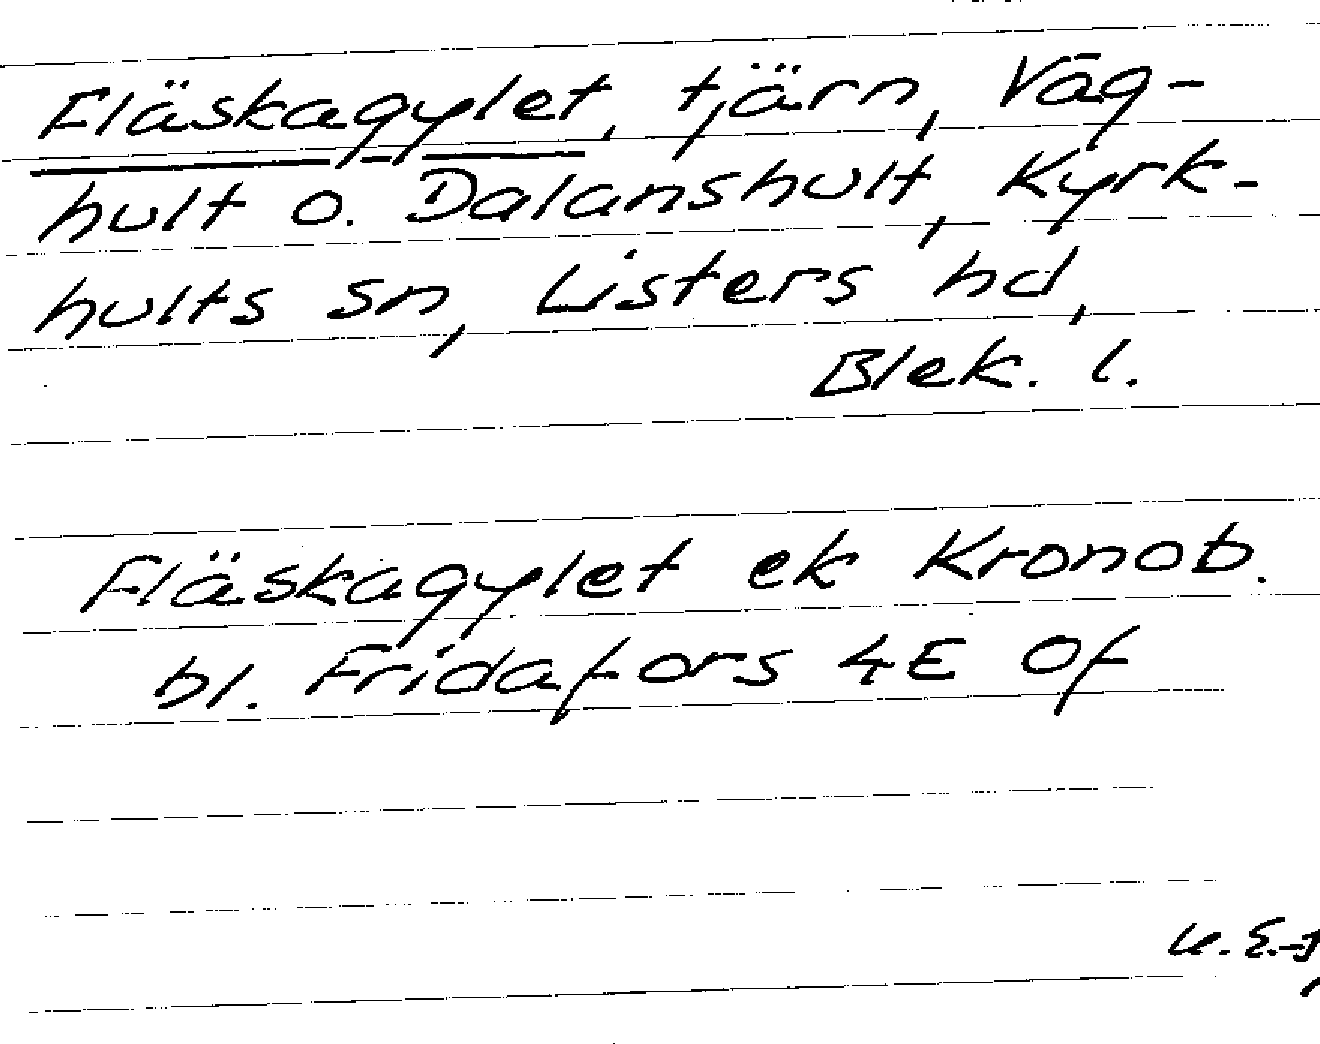 Fläskagylet, tjärn, Våg-
hult o. Dalanshult, Kyrk-
hults sn, Listers hd,
Blek. l.
Fläskagylet ek Kronob.
bl. Fridafors 4E Of